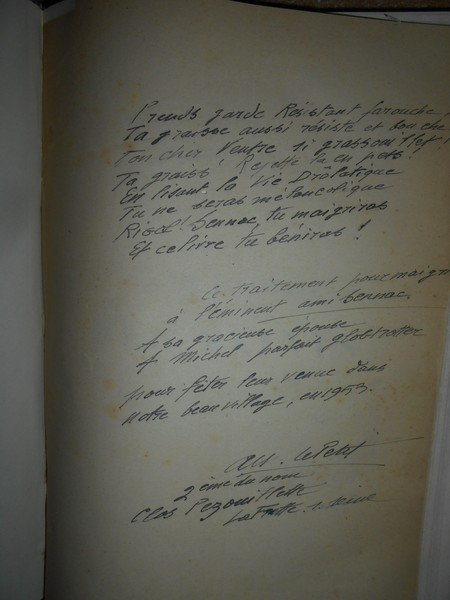 Prends garde Résistant farouche,
Ta graisse aussi résiste et bouche
Ton cher Ventre si grassouillet,
Ta graiss' Rejette la en pets!
En lisant la Vie Drôlatique
Tu ne seras mélancolique
Rigol' Sennac, tu maigriras
Et ce livre tu béniras!
Ce traitement pour maigri
à l'éminent ami Sennac,
A sa gracieuse épouse
A Michel parfait globtrotter
pour fêter leur venue dans
notre beau village, en 1953.
Alf. Le Petit
2ème du nom
Clos Pegouillette
La Frette s. Seine